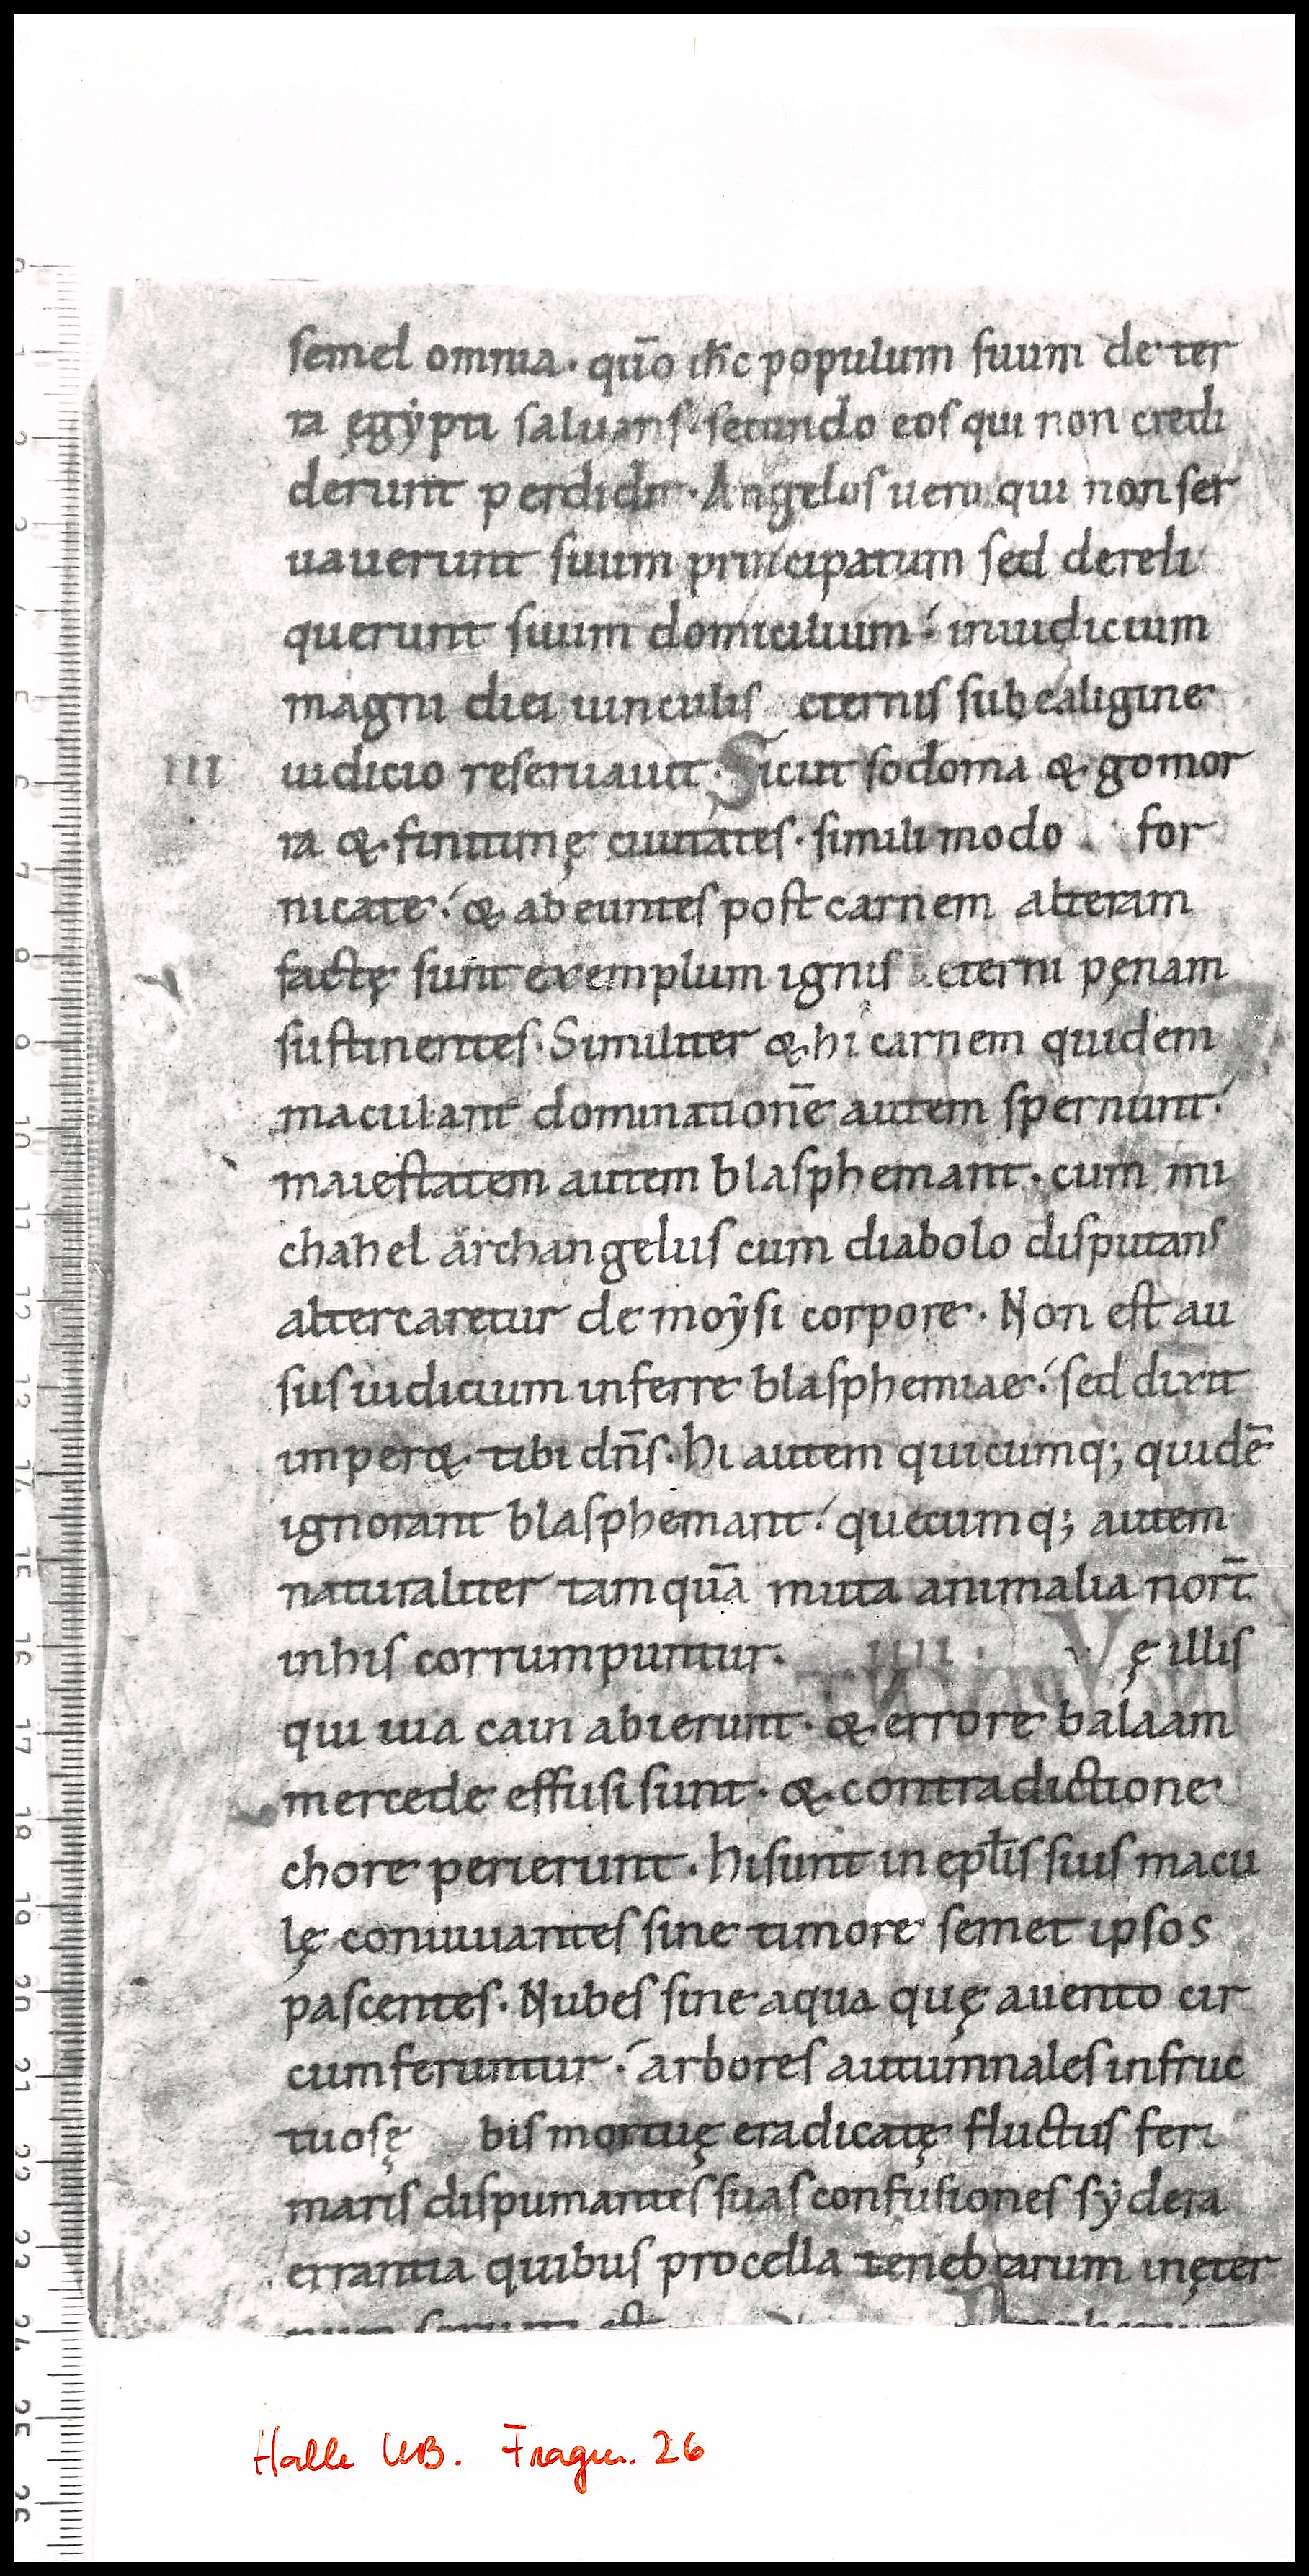 semel omnia. quo͞ ih̅c populum suum de ter
ra ęgẏpti saluans. secundo eos qui non credi
derunt perdidit. Angelos uero qui non ser
uauerunt suum principatum sed dereli
querunt suum domicilium. iniudicium
magni diei uinculis eternis sub caligine
III iudicio reseruauit. Sicut sodoma & gomor
ra & finitimę ciuitates. simili modo for
nicate. & abeuntes post carnem alteram
factę sunt exemplum ignis eterni pęnam
sustinentes. Similiter & hi carnem quidem
maculant dominationē autem spernunt.
maiestatem autem blasphemant. cum mi
chahel archangelus cum diabolo disputans
altercaretur de moẏsi corpore. Non est au
sus iudicium inferre blasphemiae. sed dixit
imper& tibi dn̄s. hi autem quicumq; quidē
ignorant blasphemant. quecumq; autem
naturaliter tamquā muta animalia nort̄
inhis corrumpuntur. IIII. Vę illis
qui uia cain abierunt. & errore balaam
mercede effusi sunt. & contradictione
chore perierunt. hi sunt in epl̄is suis macu
lę conuiuantes sine timore semet ipsos
pascentes. Nubes sine aqua quę auento cir
cumferuntur. arbores autumnales infruc
tuosę bis mortuę eradicatę fluctus feri
maris dispumantes suas confusiones sẏdera
errantia quibus procella tenebrarum inęter
Halle UB. Fragm. 26
0
1
2
3
4
5
6
7
8
9
10
11
12
13
14
15
16
17
18
19
20
21
22
23
24
25
26